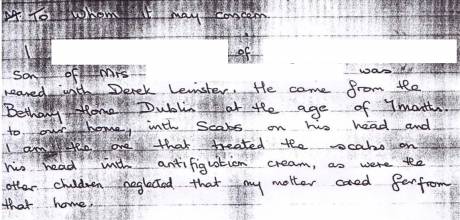 To Whom It May Concern
I of
Son of Mrs was
reared with Derek Leinster. He came from the
Bethany Home Dublin at the age of 7 months.
to our home, with Scabs on his head and
I am the one that treated the scabs on
his head with cream, as were the
other children neglected that my mother cared for from
that home.